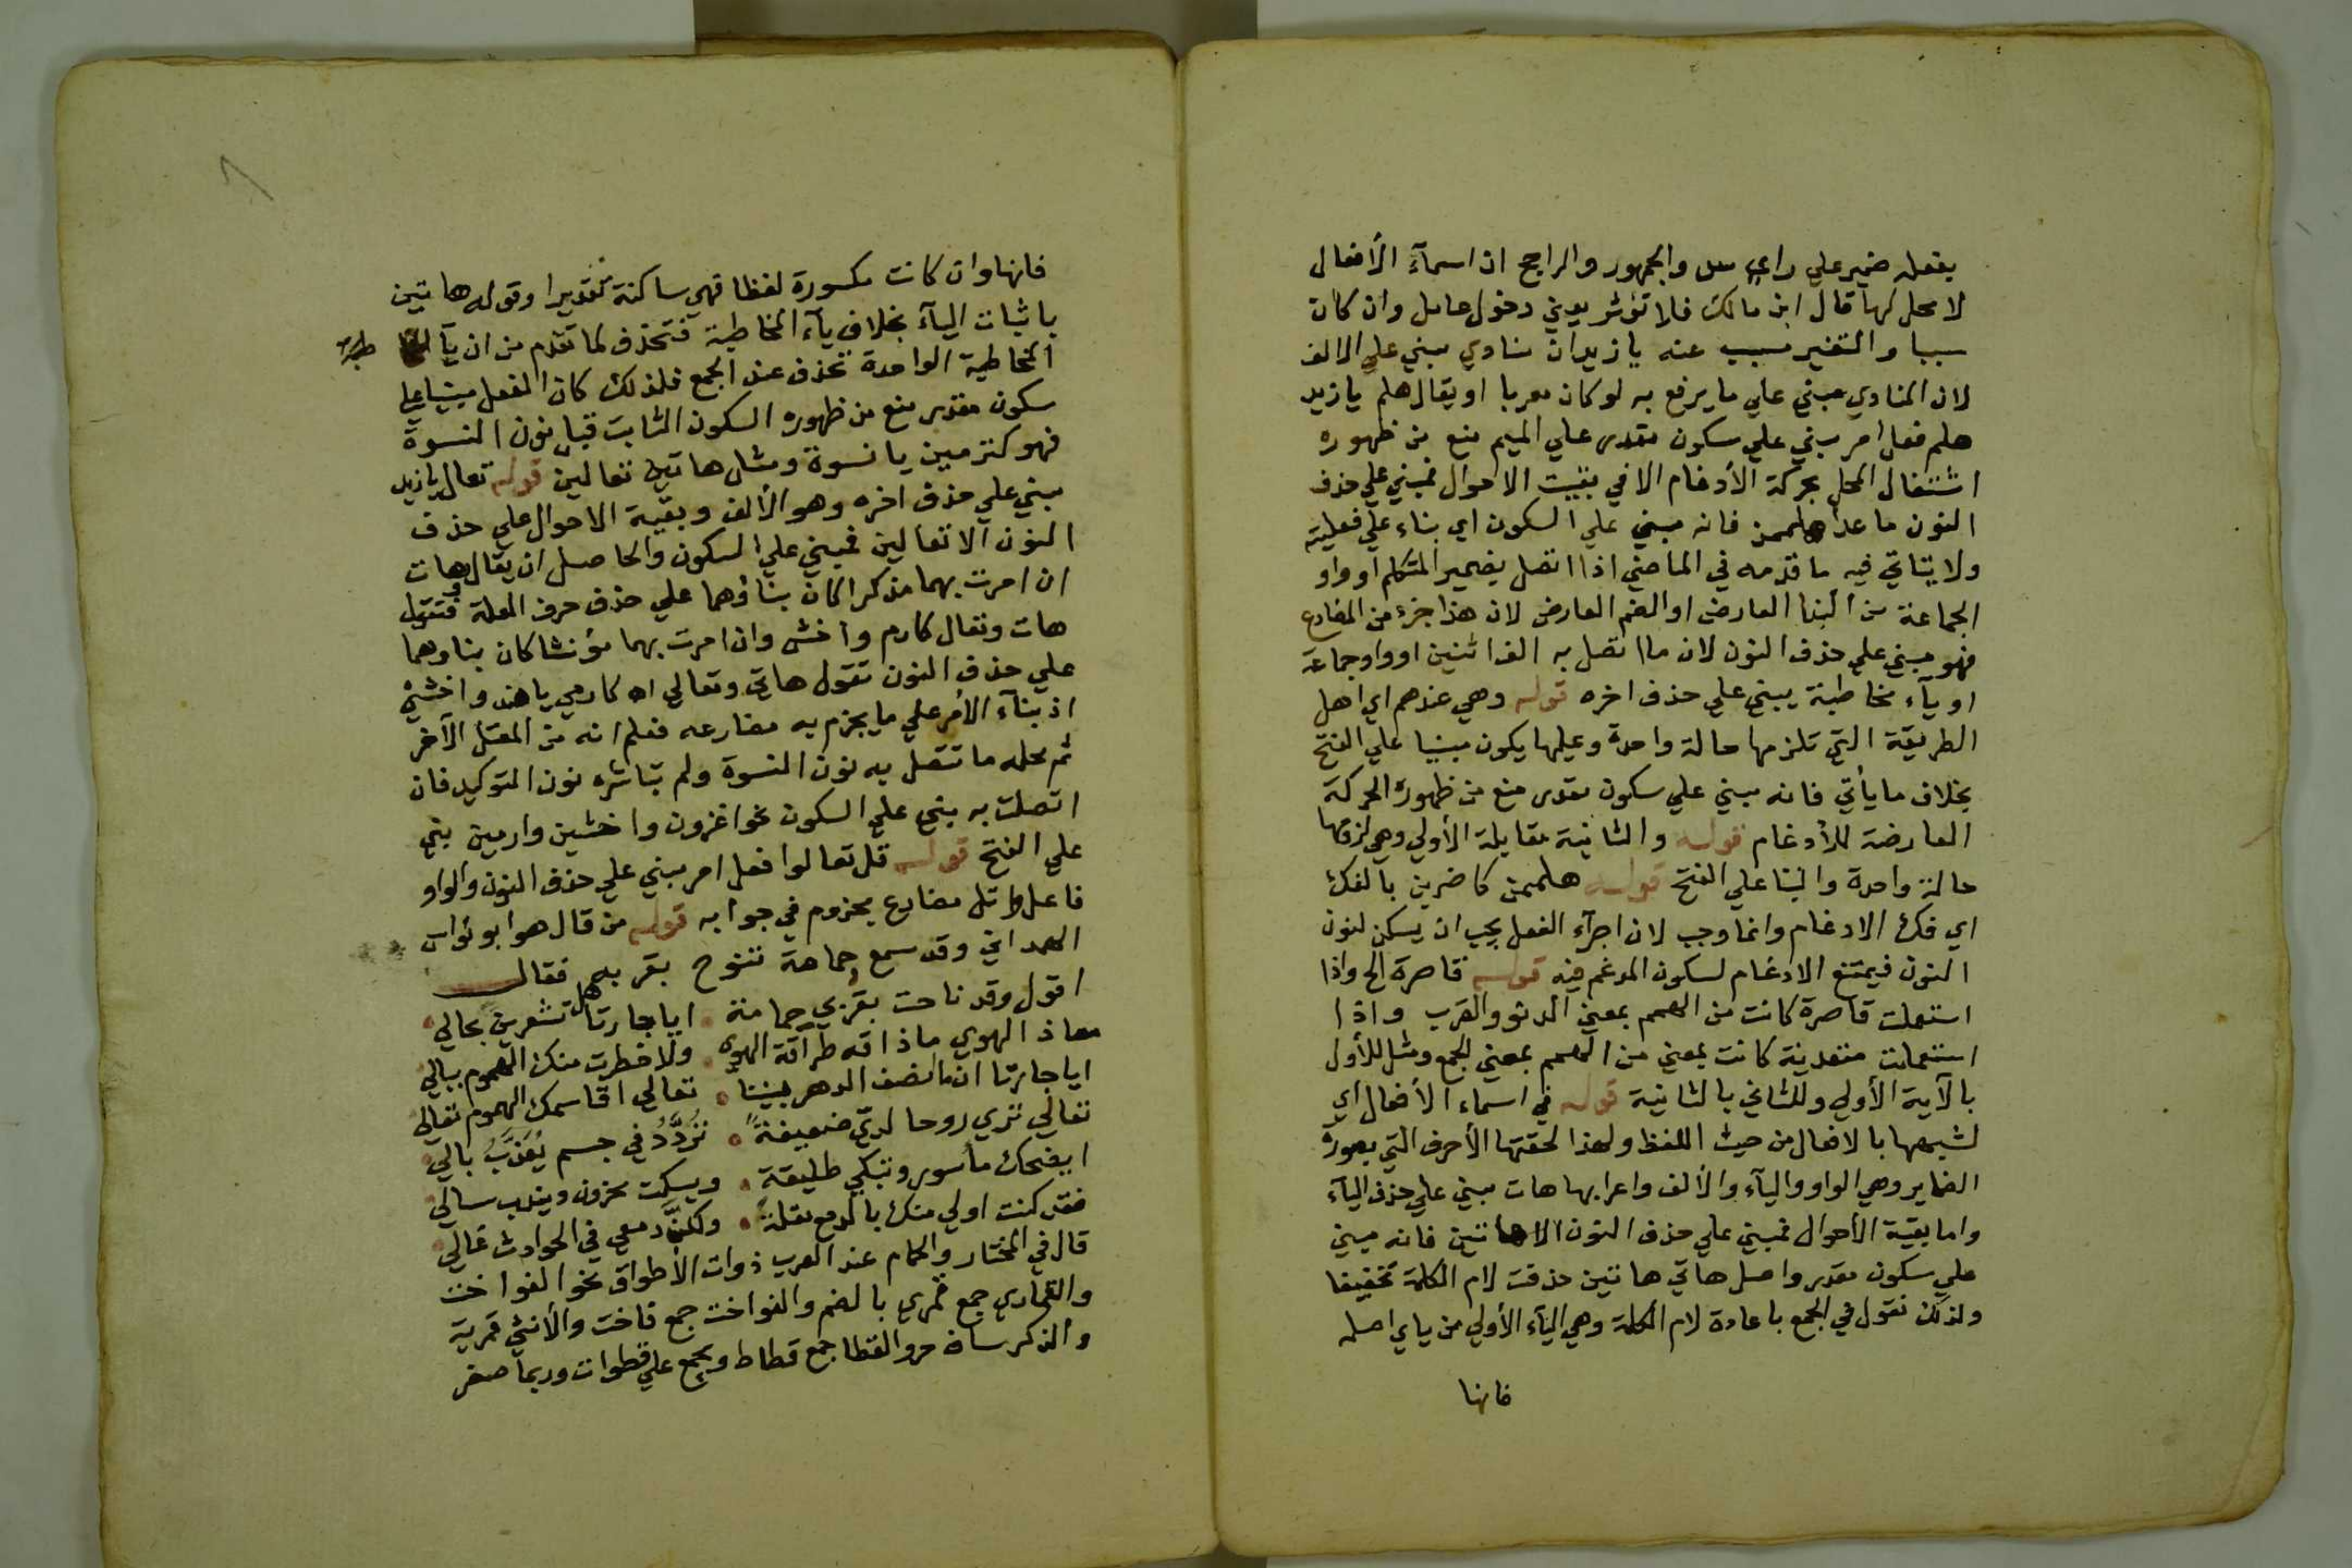 بفعله ضمير علي راي س والجمهور والراجح ان اسمآء الأفعال
لا محل لها قال ابن مالك فلا تؤثر يعني دخول عامل وان كان
سببا والتغير مسبب عنه يا زيدان منادي مبني علي الالف
لان المنادي مبني علي ما يرفع به لو كان معربا او يقال هلم يا زيد
هلم فعل امر مبني علي سكون مقدر علي الميم منع من ظهوره
اشتغال المحل بحركة الأدغام الا في بقيت الاحوال فمبني علي حذف
النون ما عدا هلممن فانه مبني علي السكون اي بناء علي فعليته
ولا يتاتي فيه ما قدمه في الماضي اذا اتصل بضمير المتكلم او واو
الجماعة من البنا العارض او الضم العارض لان هذا جزء من المضارع
فهو مبني علي حذف النون لان ما اتصل به الف اثنين او واو جماعة
او يآء مخاطبة يبني علي حذف اخره قوله وهي عندهم اي اهل
الطريقة التي تلزمها حالة واحدة وعليها يكون مبنيا علي الفتح
بخلاف ما يأتي فانه مبني علي سكون مقدر منع من ظهوره الحركة
العارضة للأدغام قوله والثانية مقابلة الأولي وهي لزومها
حالة واحدة والبنا علي الفتح قوله هلممن كاضربن بالفك
اي فك الادغام وانما وجب لان اجرآء الفعل يجب ان يسكن لنون
النون فيمتنع الادغام لسكون المدغم فيه قوله قاصرة الح واذا
استعملت قاصرة كانت من الهمم بمعني الدنو والقرب واذا
استعملت متعدية كانت بمعني من الهمم بمعني الجمع ومثل للأول
بالآية الأولي وللثاني بالثانية قوله في اسماء الأفعال اي
لشبهها بالافعال من حيث اللفظ ولهذا لحقتها الأحرف التي بصورة
الضماير وهي الواو واليآء والألف واعرابها هات مبني علي حذف اليآء
واما بقية الأحوال فمبني علي حذف النون الا هاتين فانه مبني
علي سكون مقدر واصل هاتي هاتين حذفت لام الكلمة تخفيفا
ولذلك نقول في الجمع باعادة لام الكلمة وهي اليآء الأولي من ياي اصله
فانها
فانها وان كانت مكسورة لفظا فهي ساكنة تقديرا وقوله هاتين
باثبات اليآء بخلاف يآء المخاطبة فتحذف لما تقدم من ان يآ
المخاطبة الواحدة تحذف عند الجمع فلذلك كان الفعل مبنيا علي
سكون مقدر منع من ظهوره السكون الثابت قبل نون النسوة
فهو كترمين يا نسوة ومثل هاتين تعالين قوله تعال يا زيد
مبني علي حذف اخره وهو الألف وبقية الاحوال علي حذف
النون الا تعالين فمبني علي السكون والحاصل ان يقال هات
ان امرت بهما مذكرا كان بناؤهما علي حذف حرف العلة فتقول
هات وتعال كارم واخش وان امرت بهما مؤنثا كان بناوهما
علي حذف النون تقول هاتي وتعالي اه كارمي يا هند واخشي
اذ بنآء الأمر علي ما يجزم به مضارعه فعلم انه من المعتل الآخر
ثم محله ما تتصل به نون النسوة ولم تباشره نون التوكيد فان
اتصلت به بني علي السكون نحو اغزون واخشين وارمين بني
علي الفتح قوله قل تعالوا فعل امر مبني علي حذف النون والواو
فاعل واتل مضارع مجزوم في جوابه قوله من قال هو ابو نواس
الهمداني وقد سمع حمامة تنوح بقربه فقال
اقول وقد ناحت بقربي حمامة ايا جارتا هل تشعرين بحالي
معاذ الهوي ماذا قه طراقة الهوي ولا خطرت منك الهموم ببالي
ايا جارتا ان ما انصف الدهر بيننا تعالي اقاسمك الهموم تعالي
تعالي تري روحا لديّ ضعيفةً تُردَّدُ في جسم يُعَذَّبُ بالي
ايضحك مأسور وتبكي طليقة ويسكت محزون ويندب سالي
فقد كنت اولي منك بالدمع مقلة ولكنَّ دمعي في الحوادث غالي
قال في المختار والحمام عند العرب ذوات الأطواق نحو الفواخت
والقماري جمع قمري بالضم والفواخت جمع فاخت والأنثي قمرية
والذكر ساق حر والقطا جمع قطاط ويجمع علي قطوات وربما صغر